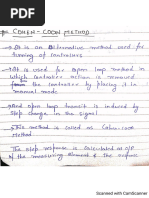 * COHEN-COON METHOD
→ It is an alternative method used for
tuning of controllers
→ It is used for open loop method in
which controller action is removed
from the controller by placing it in
manual mode
→ And open loop transit is induced by
step change in the signal
→ This method is called as
method
The step response is calculated as o/p
of the measuring element &
Scanned with CamScanner